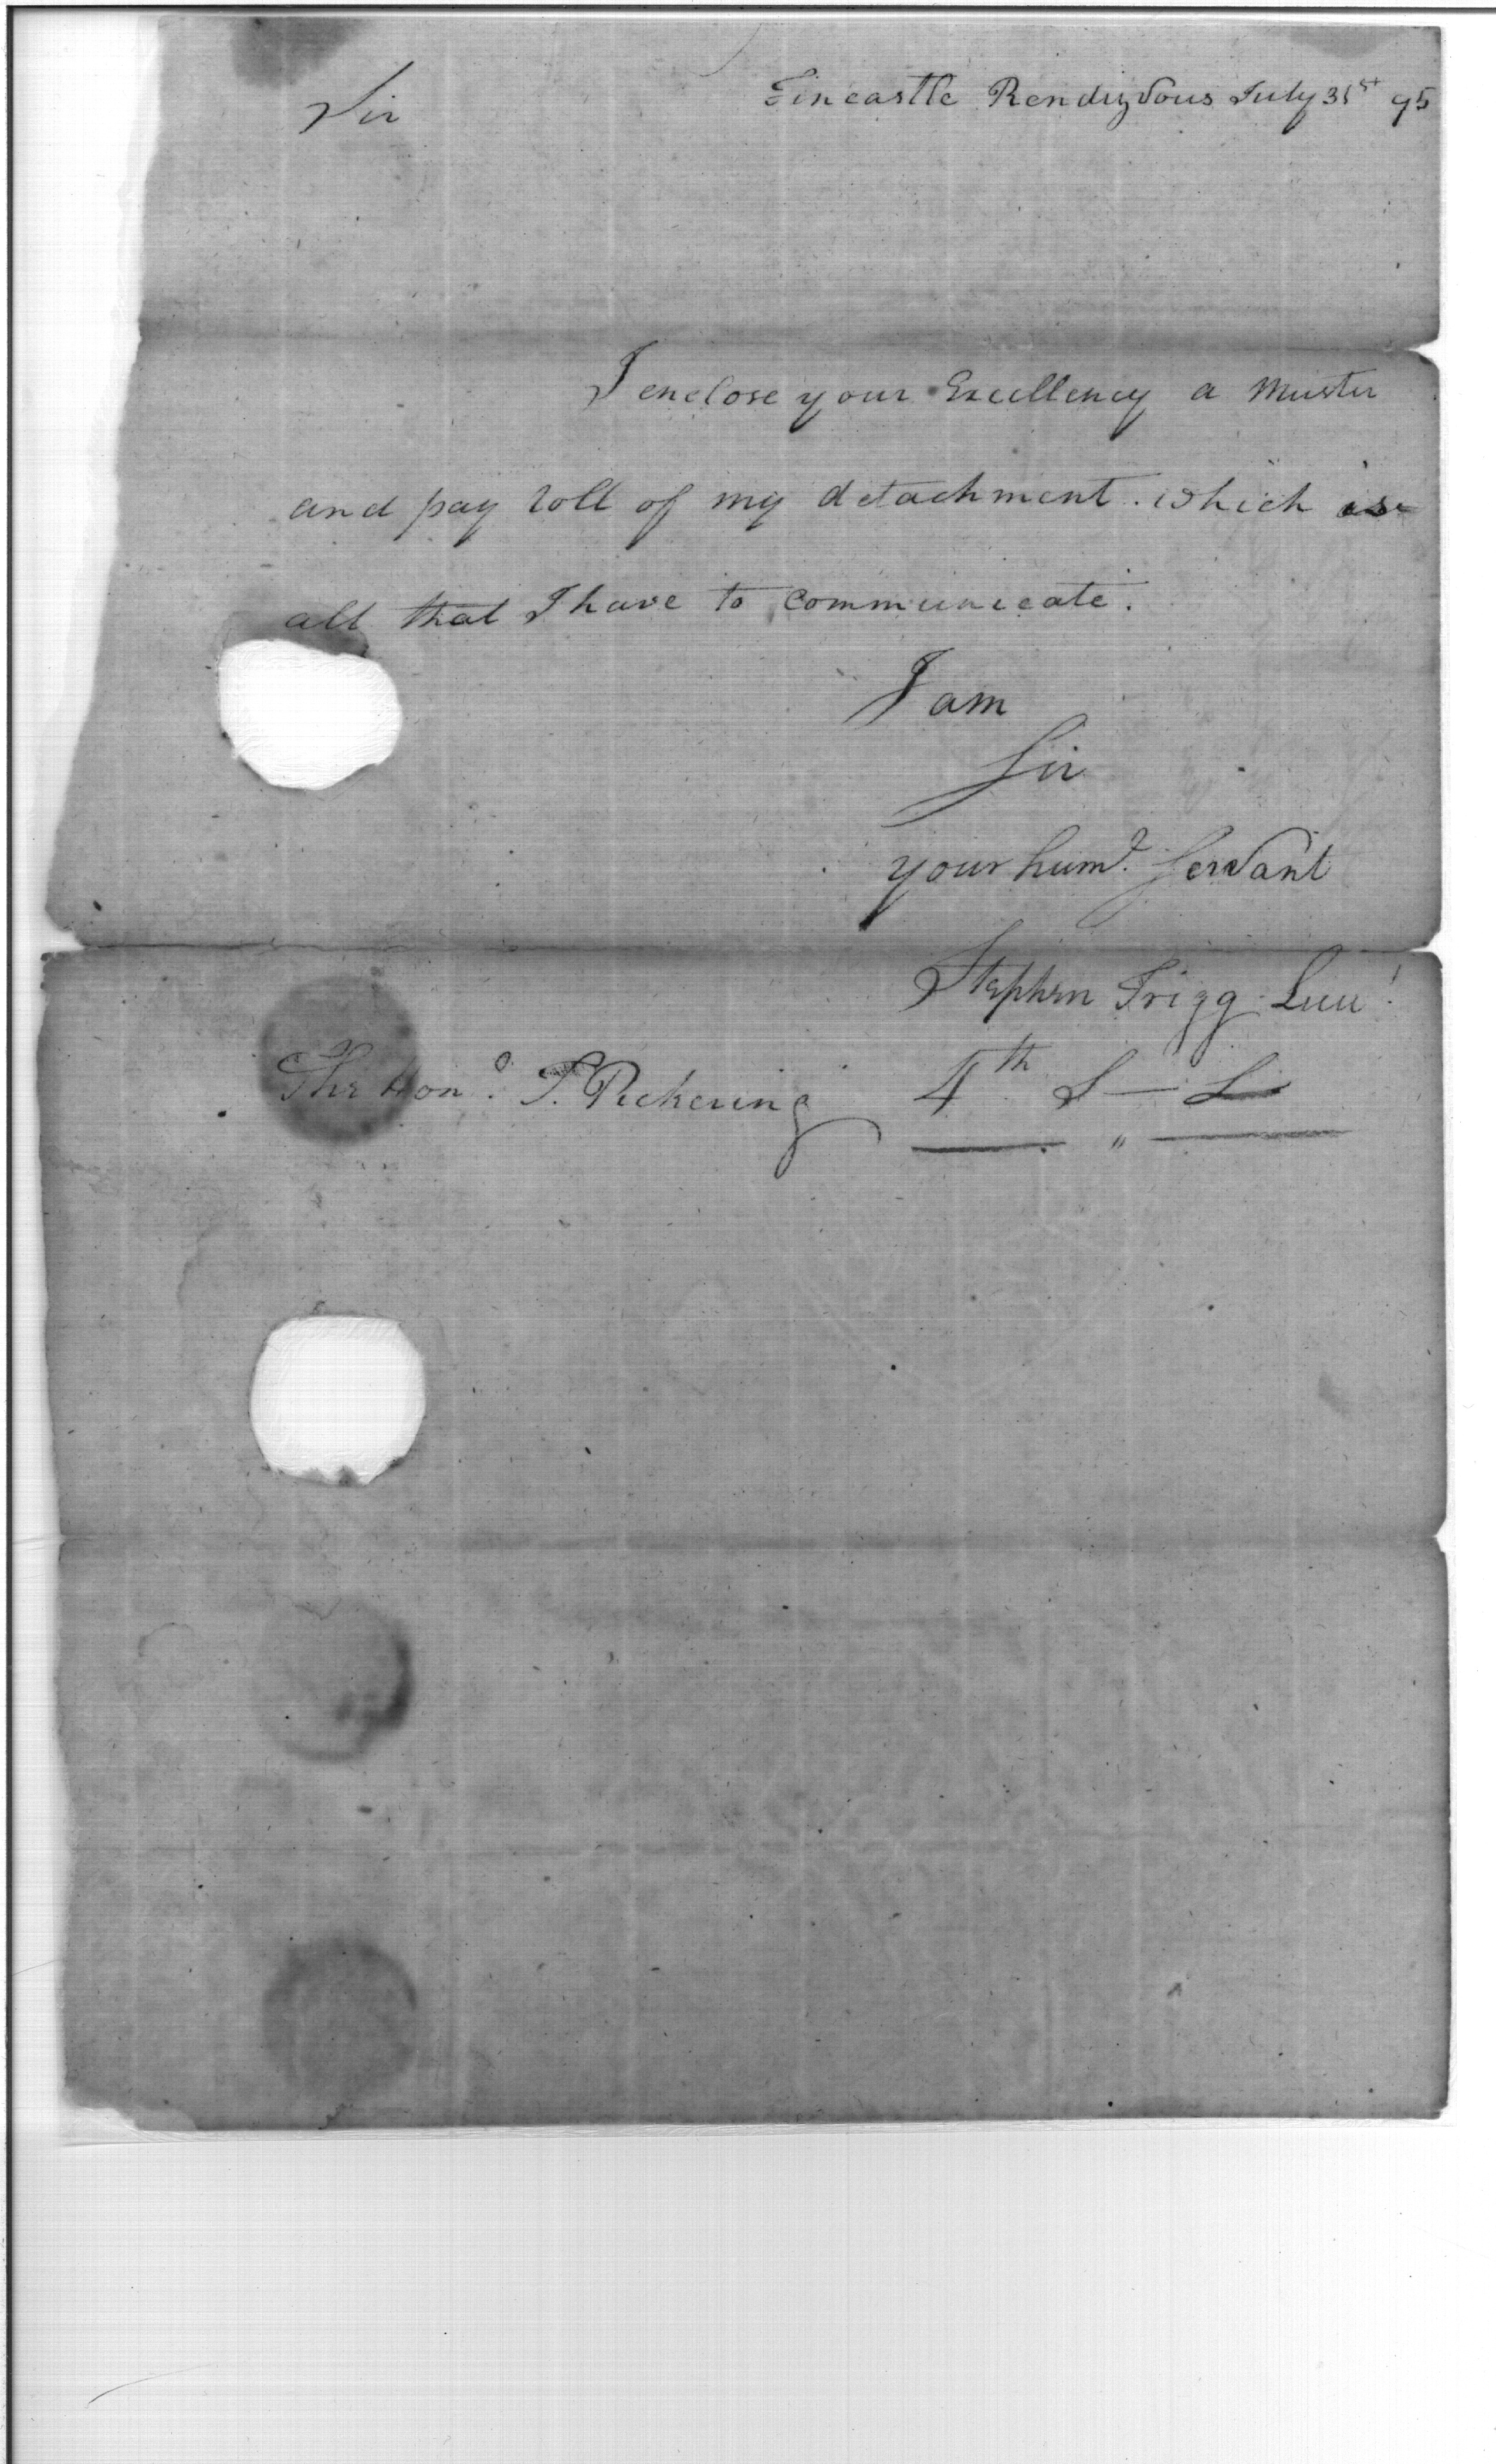 Fincastle Rendizvous July 31st 95
Sir
I enclose your Excellency a Muster
and pay roll of my detachment. which is
all that I have to communicate.
I am
Sir
your humd. Servant
Stephen Trigg Lieut.
The Hond. T. Pickering 4th S — L